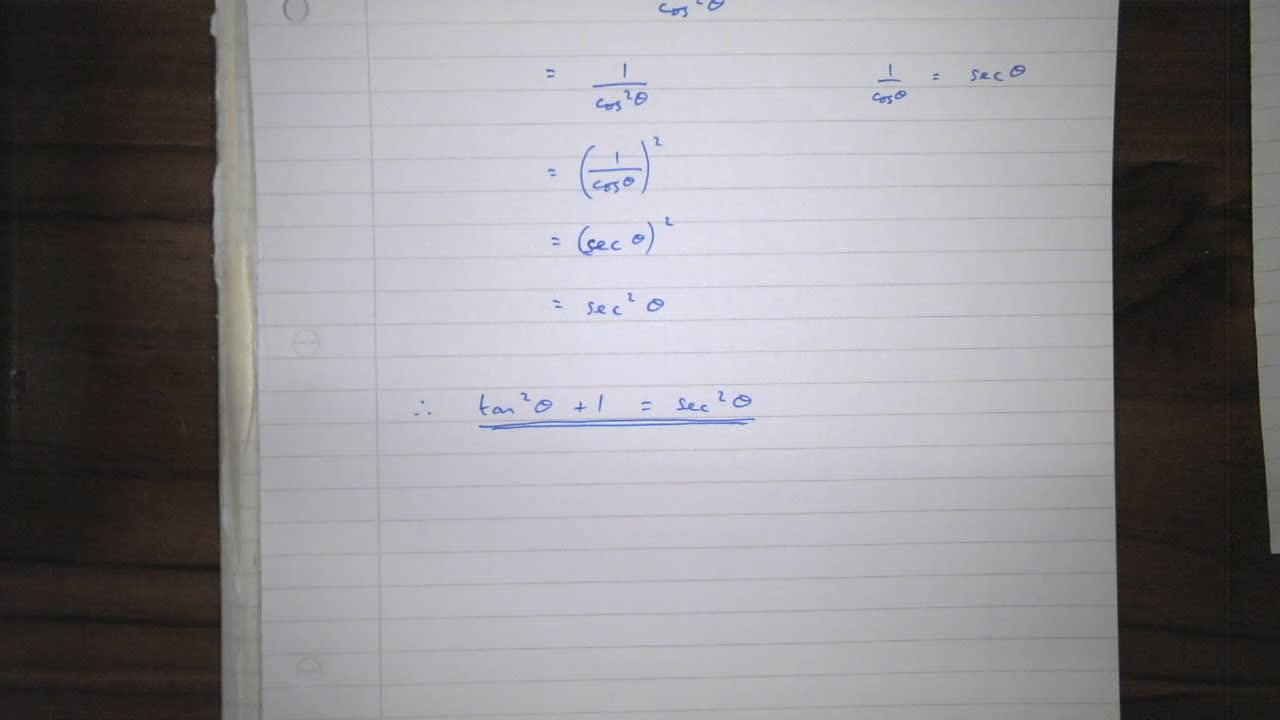 cos²θ
= 1/cos²θ    1/cosθ = secθ
= (1/cosθ)²
= (sec θ)²
= sec² θ
∴ tan²θ + 1 = sec²θ